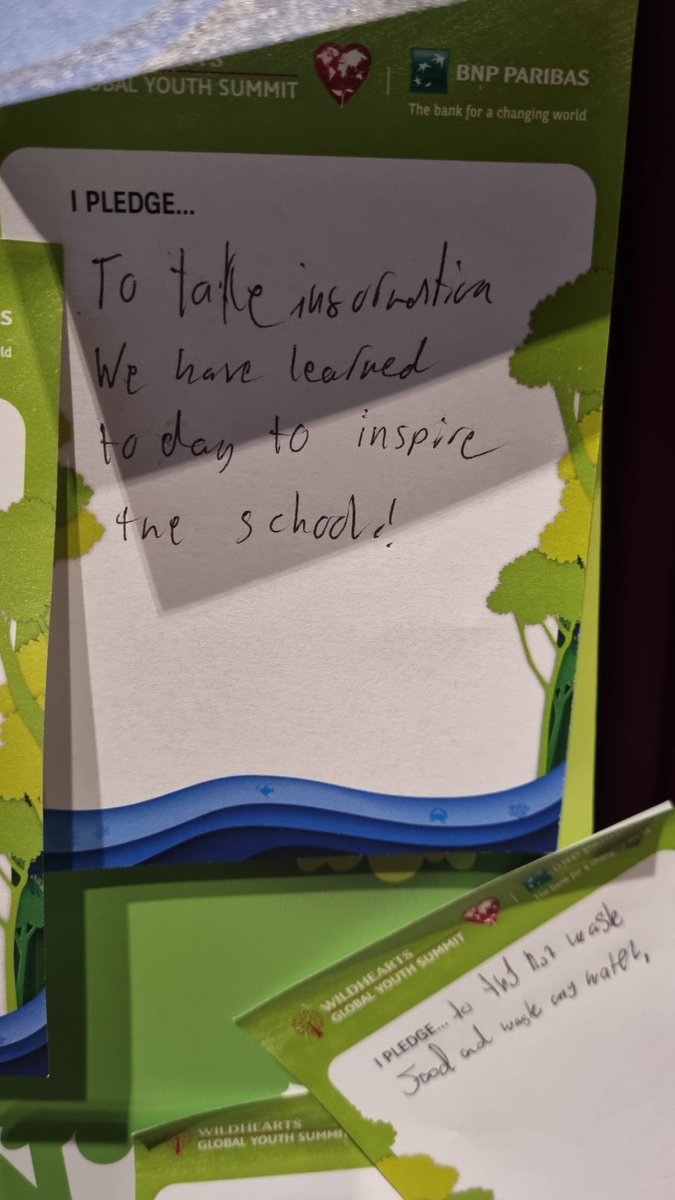 GLOBAL YOUTH SUMMIT
BNP PARIBAS
The bank for a changing world
I PLEDGE...
To take insormation
We have learned
today to inspire
the school!
WILDHEARTS
GLOBAL YOUTH SUMMIT
BNP PARIBAS
The bank for a changing world
I PLEDGE... to not waste
food and waste any water,
WILDHEARTS
GLOBAL YOUTH SUMMIT